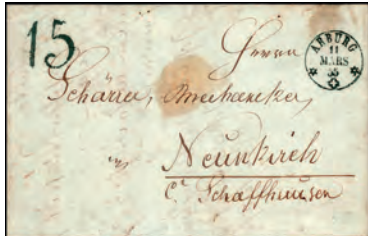 15
Herrn
ARBURG
11
MÄRS
55
Schärrer, Mechaniker,
in
Neunkirch
Ct Schaffhausen